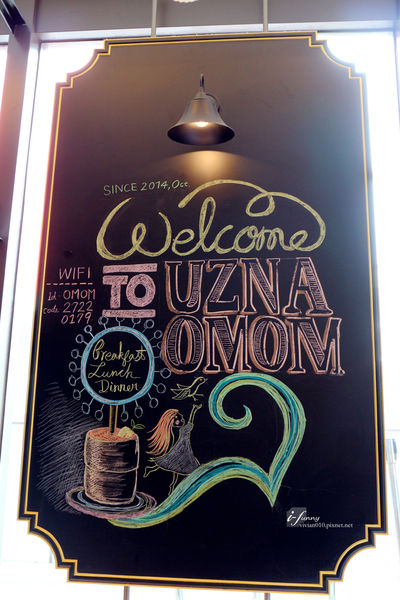 SINCE 2014, Oct.
Welcome
TO
UZNA
OMOM.
WIFI
id: OMOM
code: 2722
0179
Breakfast
Lunch
Dinner
i-funny
vivian010.pixnet.net